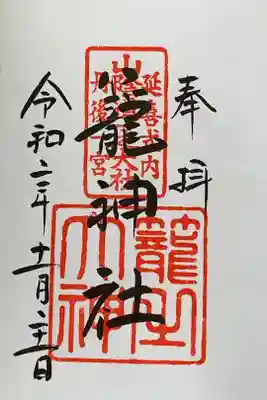 奉拝
延喜式内
大社
丹後一宮
籠神社
籠之
大神
令和二年十一月二十一日